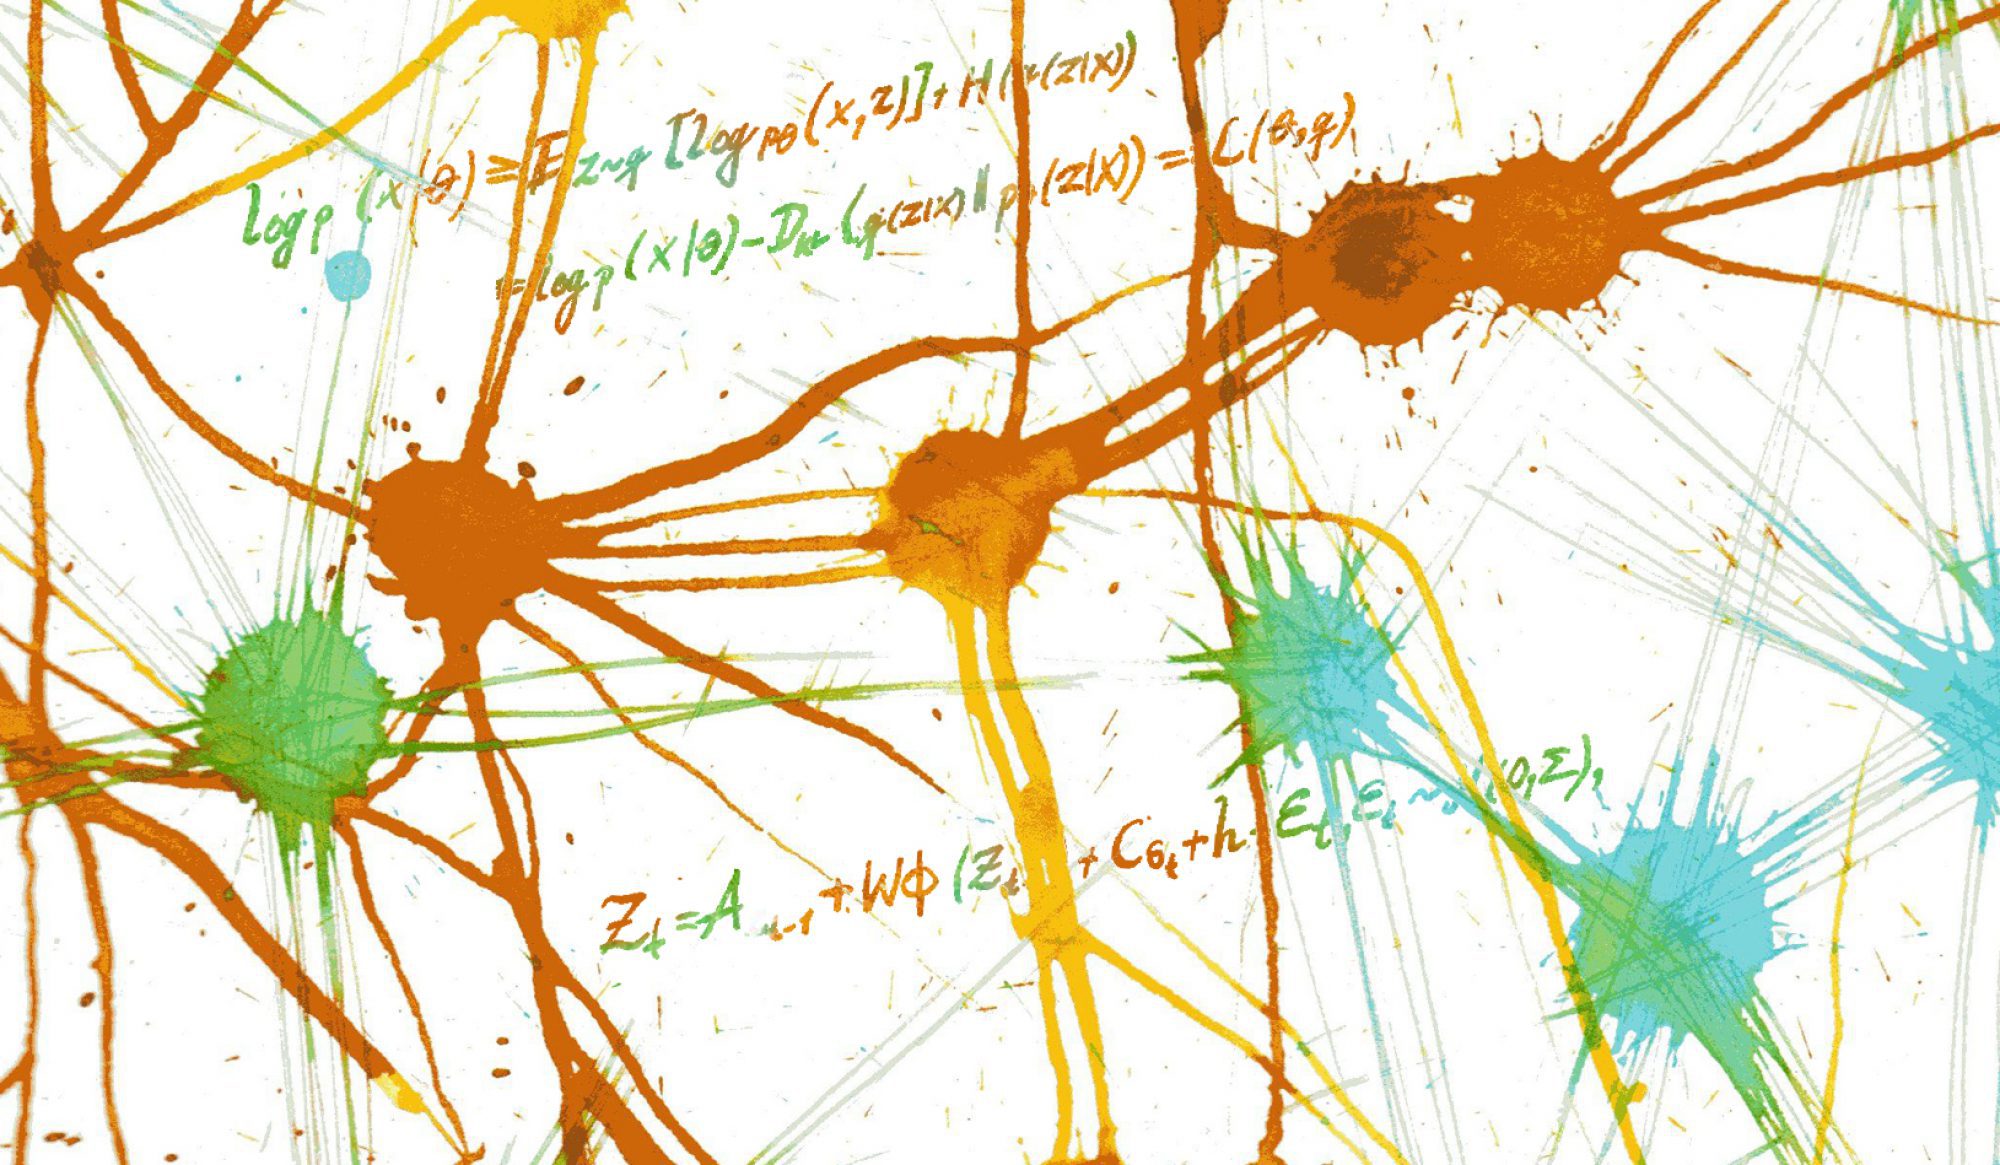 log p(x|θ) ≥ E z~q [log pθ(x,z)] + H(q(z|x))
= log p(x|θ) - D_KL(q(z|x) || p(z|x)) = L(θ,q)
Z_t = A t-1 + Wϕ(Z_t + C6_t + h + ε_t, ε_t ~ (0,Σ),